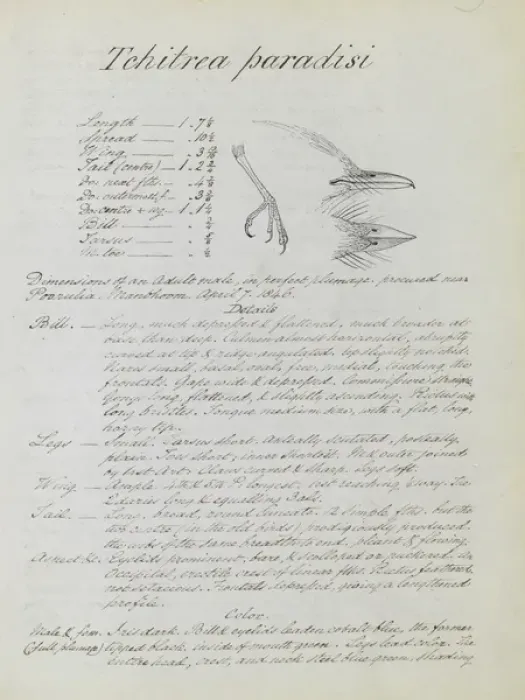 Tchitrea paradisi
Length — 1.7¼
Spread — .10½
Wing — .3
Tail (centre) — 1.2
Do. next fths. — .4
Do. outermost f. — .3
Do. centre + ug. — 1.1
Bill —
Tarsus —
M. toe —
Dimensions of an Adult male, in perfect plumage, procured near
Manbhoom. April 7. 1846.
Details
Bill. — Long, much depressed & flattened, much broader at
base than deep. Culmen almost horizontal, abruptly
curved at tip & ridge angulated, tip slightly notched.
Nares small, basal, oval, free, medial, touching the
frontals. Gape wide & depressed. Commissure straight
Gonys long, flattened, & slightly ascending. Rictus with
long bristles. Tongue medium size, with a flat, long,
horny tip.
Legs — Small. Tarsus short. Anteally scutated, posteally
plain. Toes short, inner shortest. M & outer joined
by first Art. Claws curved & sharp. Legs soft.
Wing — Ample. 4th & 5th P. longest. Not reaching ½way. The
2daries long & equalling 3als.
Tail. — Long, broad, round cuneate. 12 simple fths. but the
two centre (in the old birds) prodigiously produced.
the webs of the same breadth to end, pliant & flowing.
Aspect &c. Eyelids prominent, bare, & scalloped or puckered. An
Occipital, erectile crest of linear fths. Rictus feathered
not setaceous. Frontals depressed, giving a lengthened
profile.
Color.
Male & fem. Iris dark. Bill & eyelids leaden cobalt blue, the former
(full plumage) tipped black, inside of mouth green. Legs lead color. The
entire head, crest, and neck steel blue green, shading